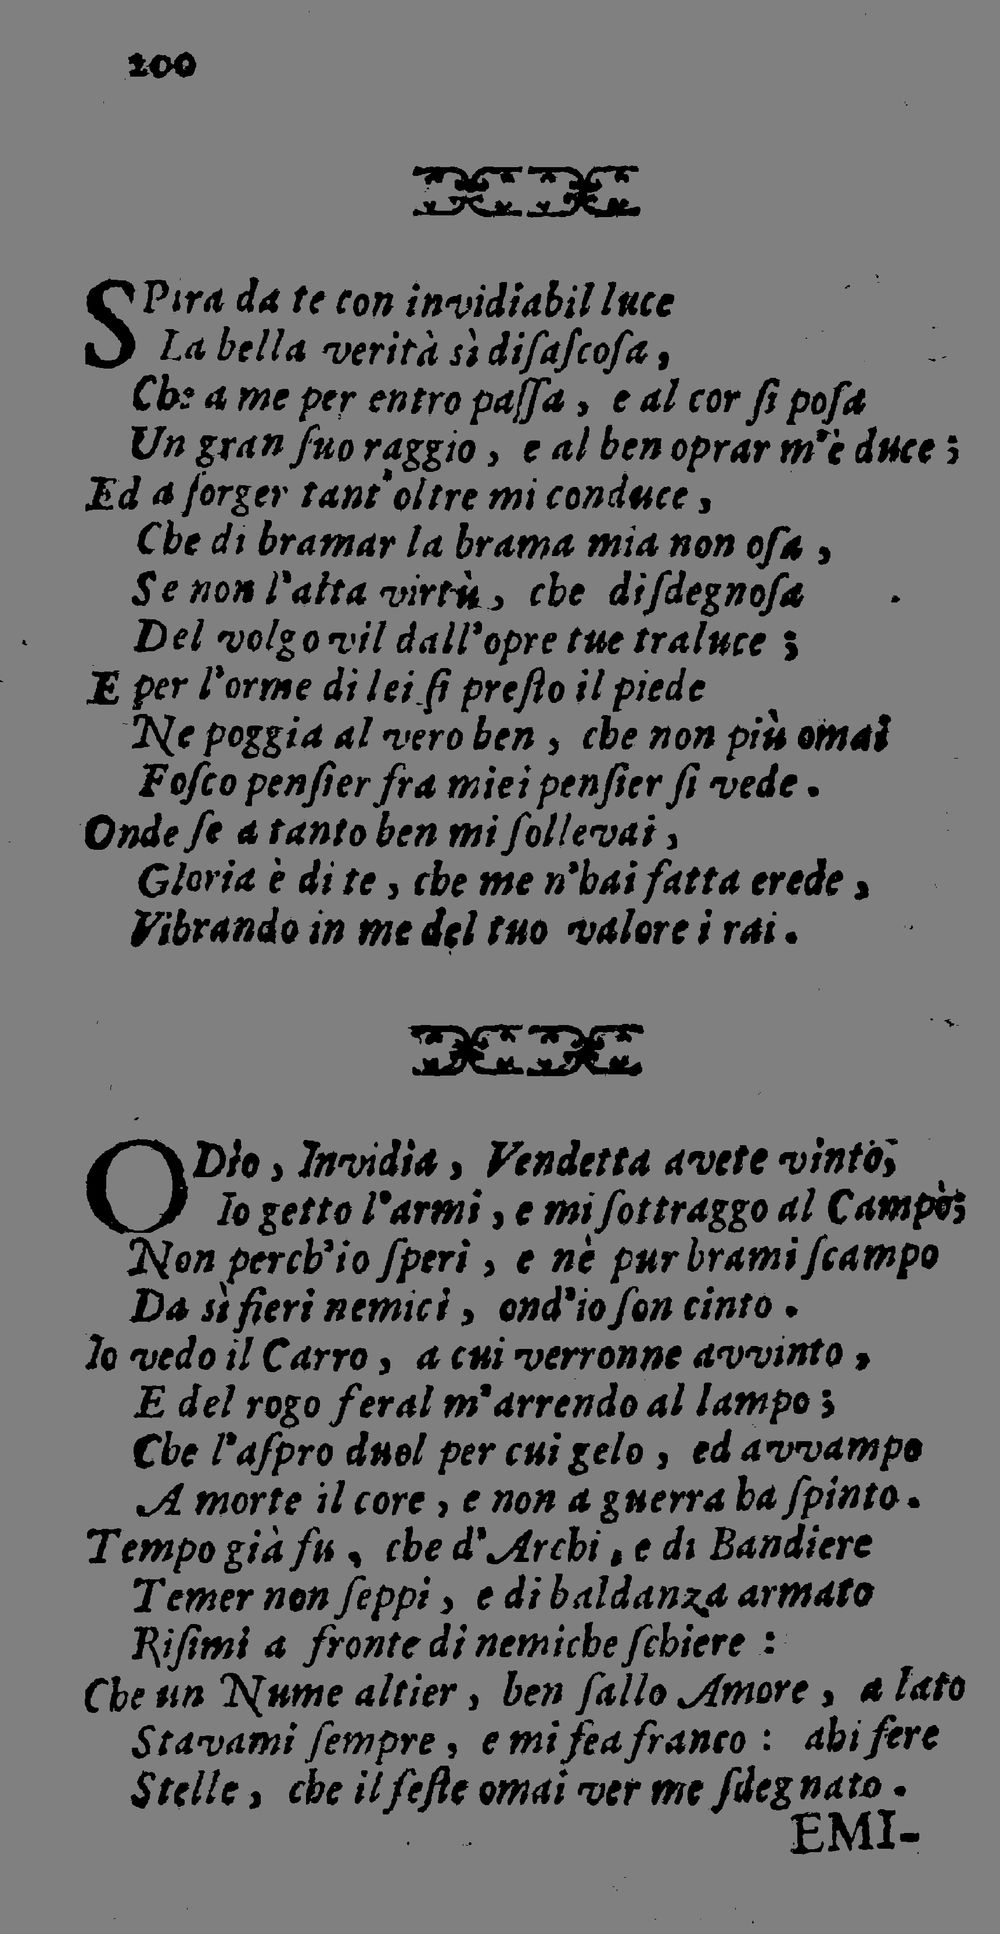 200
SPira da te con invidiabil luce
La bella verità sì diſaſcoſa,
Che a me per entro paſſa, e al cor ſi poſa
Un gran ſuo raggio, e al ben oprar m'è duce;
Ed a ſorger tant'oltre mi conduce,
Che di bramar la brama mia non oſa,
Se non l'alta virtù, che diſdegnoſa
Del volgo vil dall'opre tue traluce;
E per l'orme di lei ſi preſto il piede
Ne poggia al vero ben, che non più omai
Foſco penſier fra miei penſier ſi vede.
Onde ſe a tanto ben mi ſollevai,
Gloria è di te, che me n'hai fatta erede,
Vibrando in me del tuo valore i rai.
ODio, Invidia, Vendetta avete vinto;
Io getto l'armi, e mi ſottraggo al Campo;
Non perch'io ſperi, e nè pur brami ſcampo
Da sì fieri nemici, ond'io ſon cinto.
Io vedo il Carro, a cui verronne avvinto,
E del rogo feral m'arrendo al lampo;
Che l'aſpro duol per cui gelo, ed avvampo
A morte il core, e non a guerra ha ſpinto.
Tempo già fu, che d'Archi, e di Bandiere
Temer non ſeppi, e di baldanza armato
Riſimi a fronte di nemiche ſchiere:
Che un Nume altier, ben ſallo Amore, a lato
Stavami ſempre, e mi fea franco: ahi fere
Stelle, che il feſte omai ver me ſdegnato.
EMI-